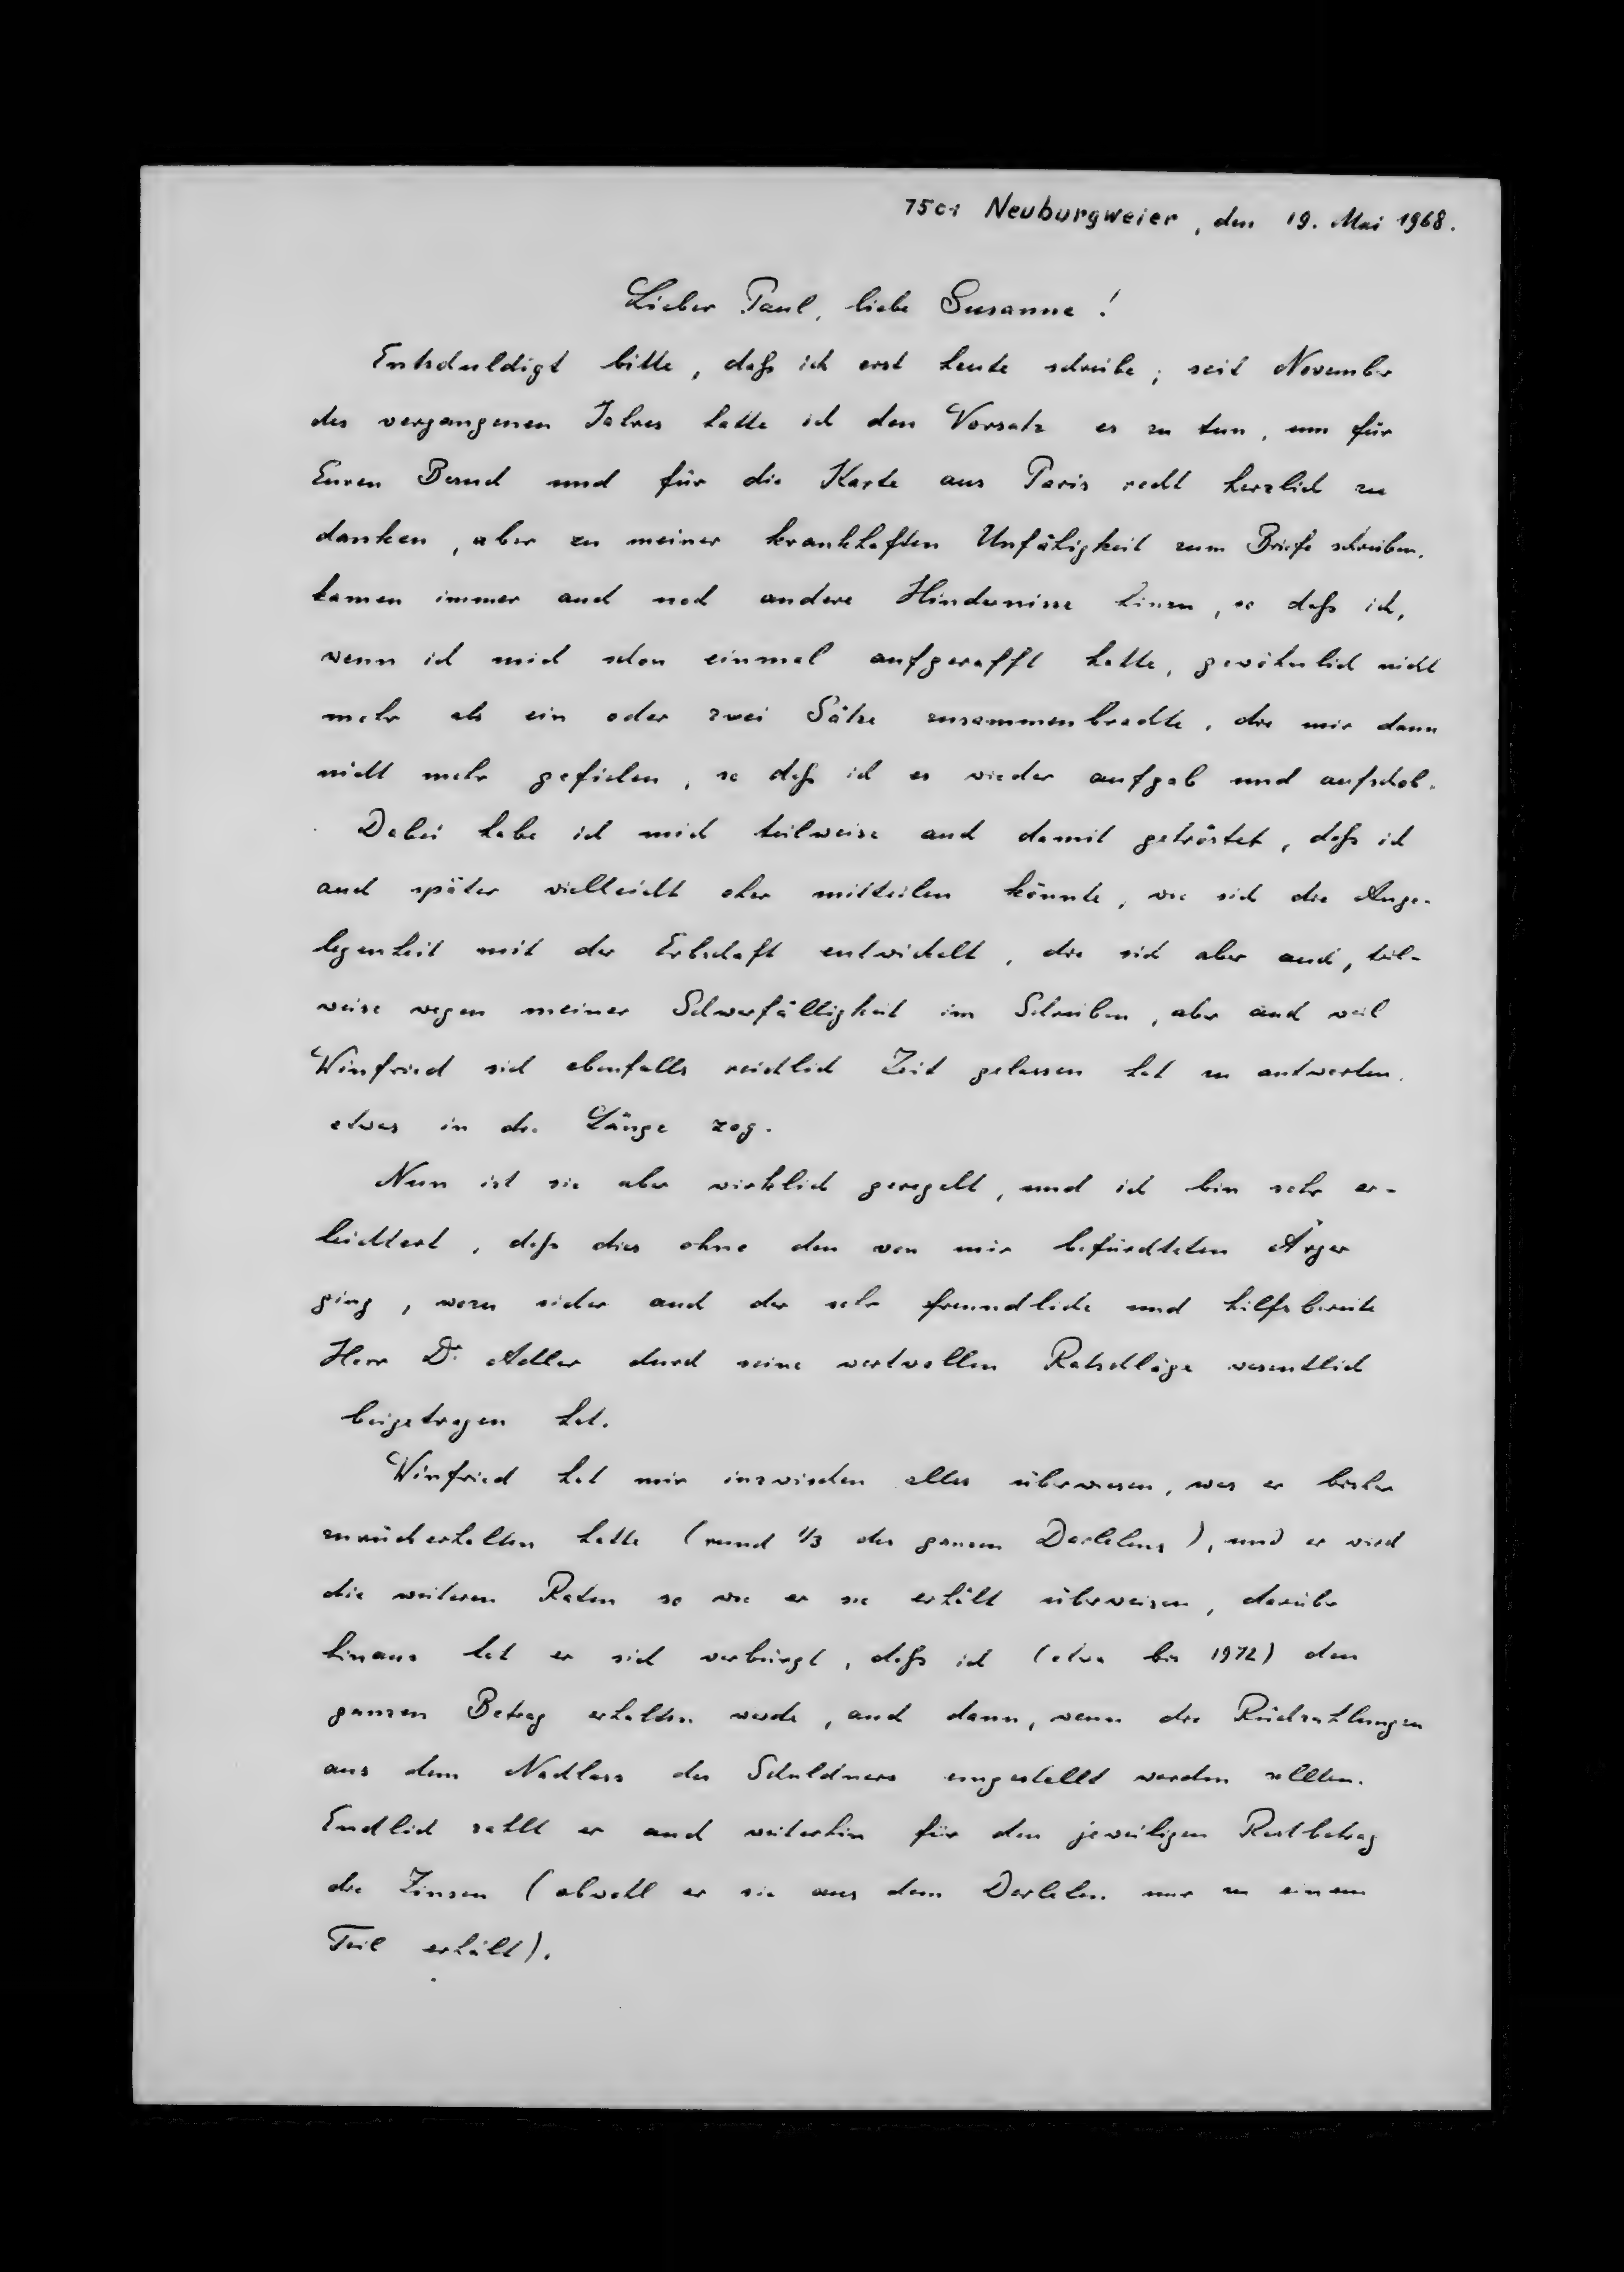 7501 Neuburgweier, den 19. Mai 1968.
Lieber Paul, liebe Susanne!
Entschuldigt bitte, daß ich erst heute schreibe; seit November
des vergangenen Jahres hatte ich den Vorsatz es zu tun, um für
Euren Besuch und für die Karte aus Paris recht herzlich zu
danken, aber zu meiner krankhaften Unfähigkeit zum Briefe schreiben,
kamen immer auch noch andere Hindernisse hinzu, so daß ich,
wenn ich mich schon einmal aufgerafft hatte, gewöhnlich nicht
mehr als ein oder zwei Sätze zusammenbrachte, die mir dann
nicht mehr gefielen, so daß ich es wieder aufgab und aufschob.
Dabei habe ich mich teilweise auch damit getröstet, daß ich
auch später vielleicht eher mitteilen könnte, wie sich die Ange-
legenheit mit der Erbschaft entwickelt, die sich aber auch, teil-
weise wegen meiner Schwerfälligkeit im Schreiben, aber auch weil
Winfried sich ebenfalls reichlich Zeit gelassen hat zu antworten,
etwas in die Länge zog.
Nun ist sie aber wirklich geregelt, und ich bin sehr er-
leichtert, daß dies ohne den von mir befürchteten Ärger
ging, wozu sicher auch der sehr freundliche und hilfsbereite
Herr Dr. Adler durch seine wertvollen Ratschläge wesentlich
beigetragen hat.
Winfried hat mir inzwischen alles überwiesen, was er bisher
zurückerhalten hatte (rund 1/3 des ganzen Darlehens), und er wird
die weiteren Raten so wie er sie erhält überweisen, darüber
hinaus hat er sich verbürgt, daß ich (etwa bis 1972) den
ganzen Betrag erhalten werde, auch dann, wenn die Rückzahlungen
aus dem Nachlass des Schuldners eingestellt werden sollten.
Endlich zahlt er auch weiterhin für den jeweiligen Restbetrag
die Zinsen (obwohl er sie aus dem Darlehen nur zu einem
Teil erhält).